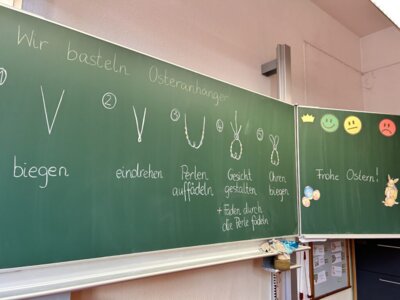 Wir basteln Osteranhänger
① ② ③ ⑤
biegen
eindrehen
Perlen
auffädeln
Gesicht
gestalten
+ Faden durch
die Perle fädeln
Ohren
biegen
Frohe Ostern!